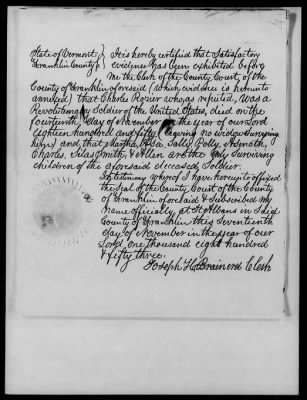 State of Vermont } It is hereby certified that Satisfactory
Franklin County } evidence has been exhibited before
Me the Clerk of the County Court, of the
County of Franklin aforesaid (which evidence is hereunto
annexed) that Charles who was reputed, was a
Revolutionary Soldier of the United States, died on the
fourteenth day of November in the year of our Lord
Eighteen hundred and fifty (leaving no widow surviving
him) and that Martha, Sally, Polly,
Charles, Silas, Smith, & Allen are the only surviving
children of the aforesaid deceased Soldier.
In testimony whereof I have hereunto affixed
the Seal of the County Court of the County
of Franklin aforesaid & Subscribed my
Name officially, at St Albans in Said
County of Franklin this Seventeenth
day of November in the year of our
Lord one thousand eight hundred
& fifty three.
Joseph H. Brainerd Clerk